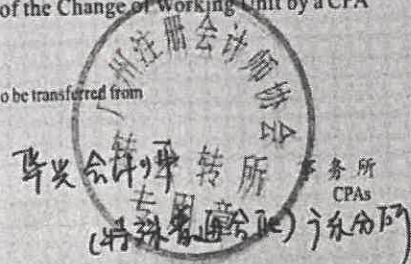 of the Change of Working Unit by a CPA
o be transferred from
广州注册会计师协会
转所
专用章
华兴会计师
事务所
CPAs
(特殊普通合伙)广东分所